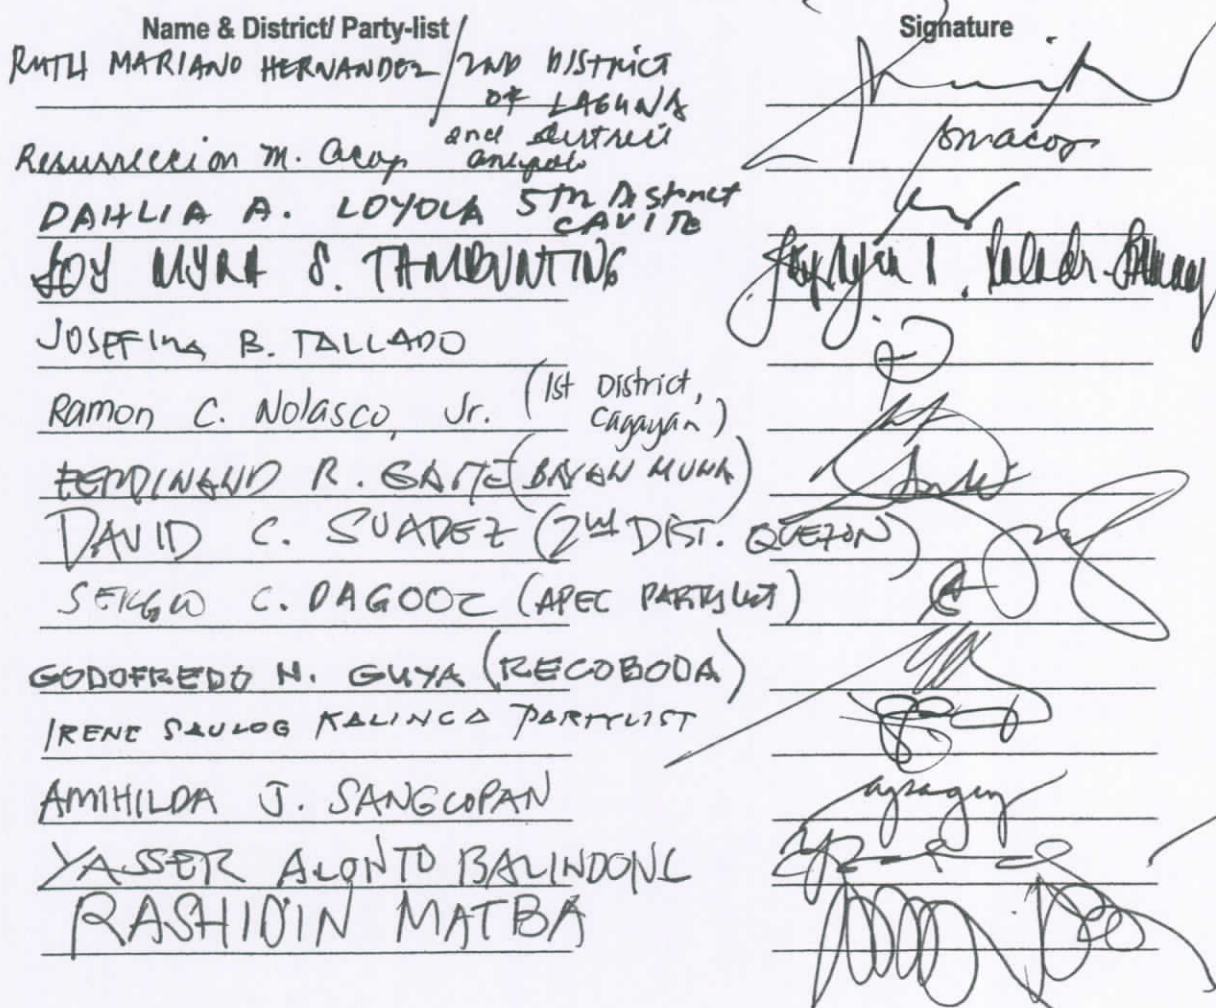 Name & District/ Party-list Signature
RUTH MARIANO HERNANDEZ / 2ND DISTRICT
OF LAGUNA
Resurreccion M. Acop 2nd district
antipolo
DAHLIA A. LOYOLA 5TH District
CAVITE
JOY MYRA S. TAMBUNTING
JOSEFINA B. TALLADO
Ramon C. Nolasco, Jr. (1st District,
Cagayan)
FERDINAND R. GAITE (BAYAN MUNA)
DAVID C. SUAREZ (2ND DIST. QUEZON)
SERGIO C. DAGOOC (APEC PARTYLIST)
GODOFREDO N. GUYA (RECOBODA)
IRENE SAULOG KALINGA PARTYLIST
AMIHILDA J. SANGCOPAN
YASSER ALONTO BALINDONG
RASHIDIN MATBA